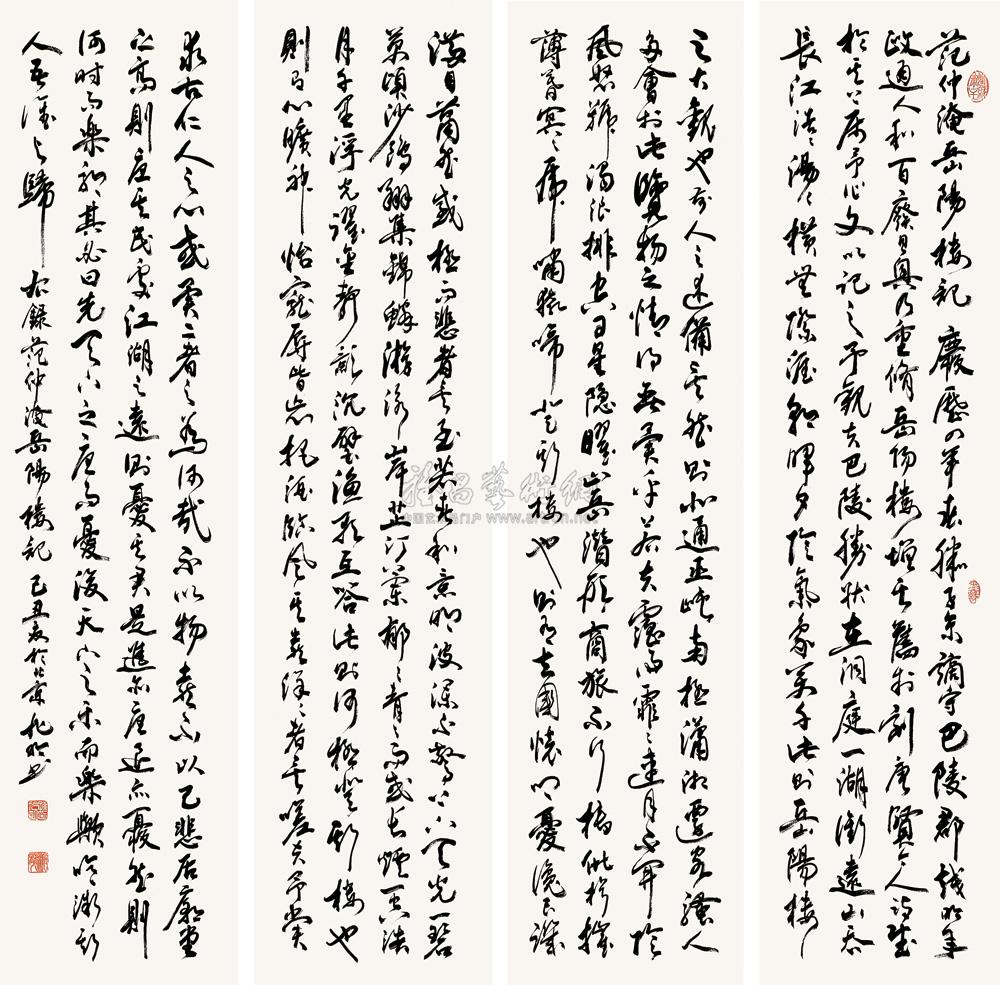 范仲淹岳陽樓記 慶歷四年春滕子京謫守巴陵郡越明年
政通人和百廢具興乃重修岳陽樓增其舊制刻唐賢今人詩賦
於其上屬予作文以記之予觀夫巴陵勝狀在洞庭一湖銜遠山吞
長江浩浩湯湯橫無際涯朝暉夕陰氣象萬千此則岳陽樓
之大觀也前人之述備矣然則北通巫峽南極瀟湘遷客騷人
多會於此覽物之情得無異乎若夫霪雨霏霏連月不開陰
風怒號濁浪排空日星隱曜山岳潛形商旅不行檣傾楫摧
薄暮冥冥虎嘯猿啼登斯樓也則有去國懷鄉憂讒畏譏
滿目蕭然感極而悲者矣至若春和景明波瀾不驚上下天光一碧
萬頃沙鷗翔集錦鱗游泳岸芷汀蘭郁郁青青而或長煙一空皓
月千里浮光耀金靜影沉璧漁歌互答此樂何極登斯樓也
則有心曠神怡寵辱皆忘把酒臨風其喜洋洋者矣嗟夫予嘗
求古仁人之心或異二者之為何哉不以物喜不以己悲居廟堂
之高則憂其民處江湖之遠則憂其君是進亦憂退亦憂然則
何時而樂耶其必曰先天下之憂而憂後天下之樂而樂歟噫微斯
人吾誰與歸 右錄范仲淹岳陽樓記 己丑夏於北京